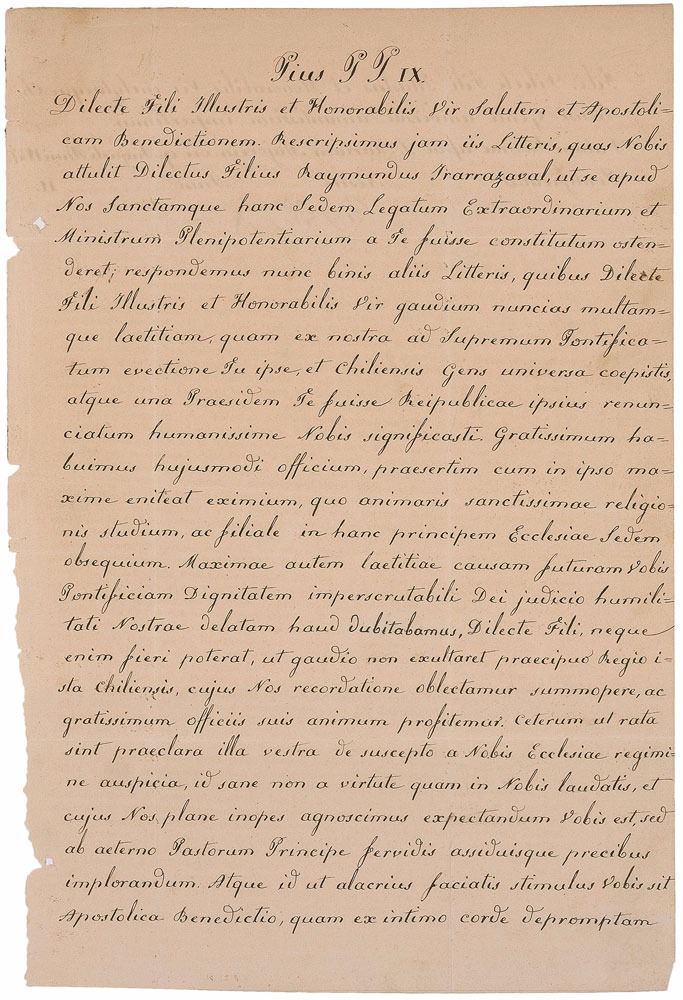 Pius P P. IX.
Dilecte Fili Illustris et Honorabilis Vir Salutem et Apostoli=
cam Benedictionem. Rescripsimus jam iis Litteris, quas Nobis
attulit Dilectus Filius Raymundus Irarrazaval, ut se apud
Nos Sanctamque hanc Sedem Legatum Extraordinarium et
Ministrum Plenipotentiarium a Te fuisse constitutum osten=
deret; respondemus nunc binis aliis Litteris, quibus Dilecte
Fili Illustris et Honorabilis Vir gaudium nuncias multam=
que laetitiam, quam ex nostra ad Supremum Pontifica=
tum evectione Tu ipse, et Chiliensis Gens universa coepistis,
atque una Praesidem Te fuisse Reipublicae ipsius renun=
ciatum humanissime Nobis significasti. Gratissimum ha=
buimus hujusmodi officium, praesertim cum in ipso ma=
xime eniteat eximium, quo animaris sanctissimae religio=
nis studium, ac filiale in hanc principem Ecclesiae Sedem
obsequium. Maximae autem laetitiae causam futuram Vobis
Pontificiam Dignitatem imperscrutabili Dei judicio humili=
tati Nostrae delatam haud dubitabamus, Dilecte Fili, neque
enim fieri poterat, ut gaudio non exultaret praecipuo Regio i=
sta Chiliensis, cujus Nos recordatione oblectamur summopere, ac
gratissimum officiis suis animum profitemur. Ceterum ut rata
sint praeclara illa vestra de suscepto a Nobis Ecclesiae regimi=
ne auspicia, id sane non a virtute quam in Nobis laudatis, et
cujus Nos plane inopes agnoscimus expectandum Vobis est, sed
ab aeterno Pastorum Principe fervidis assiduisque precibus
implorandum. Atque id ut alacrius faciatis stimulus Vobis sit
Apostolica Benedictio, quam ex intimo corde depromptam